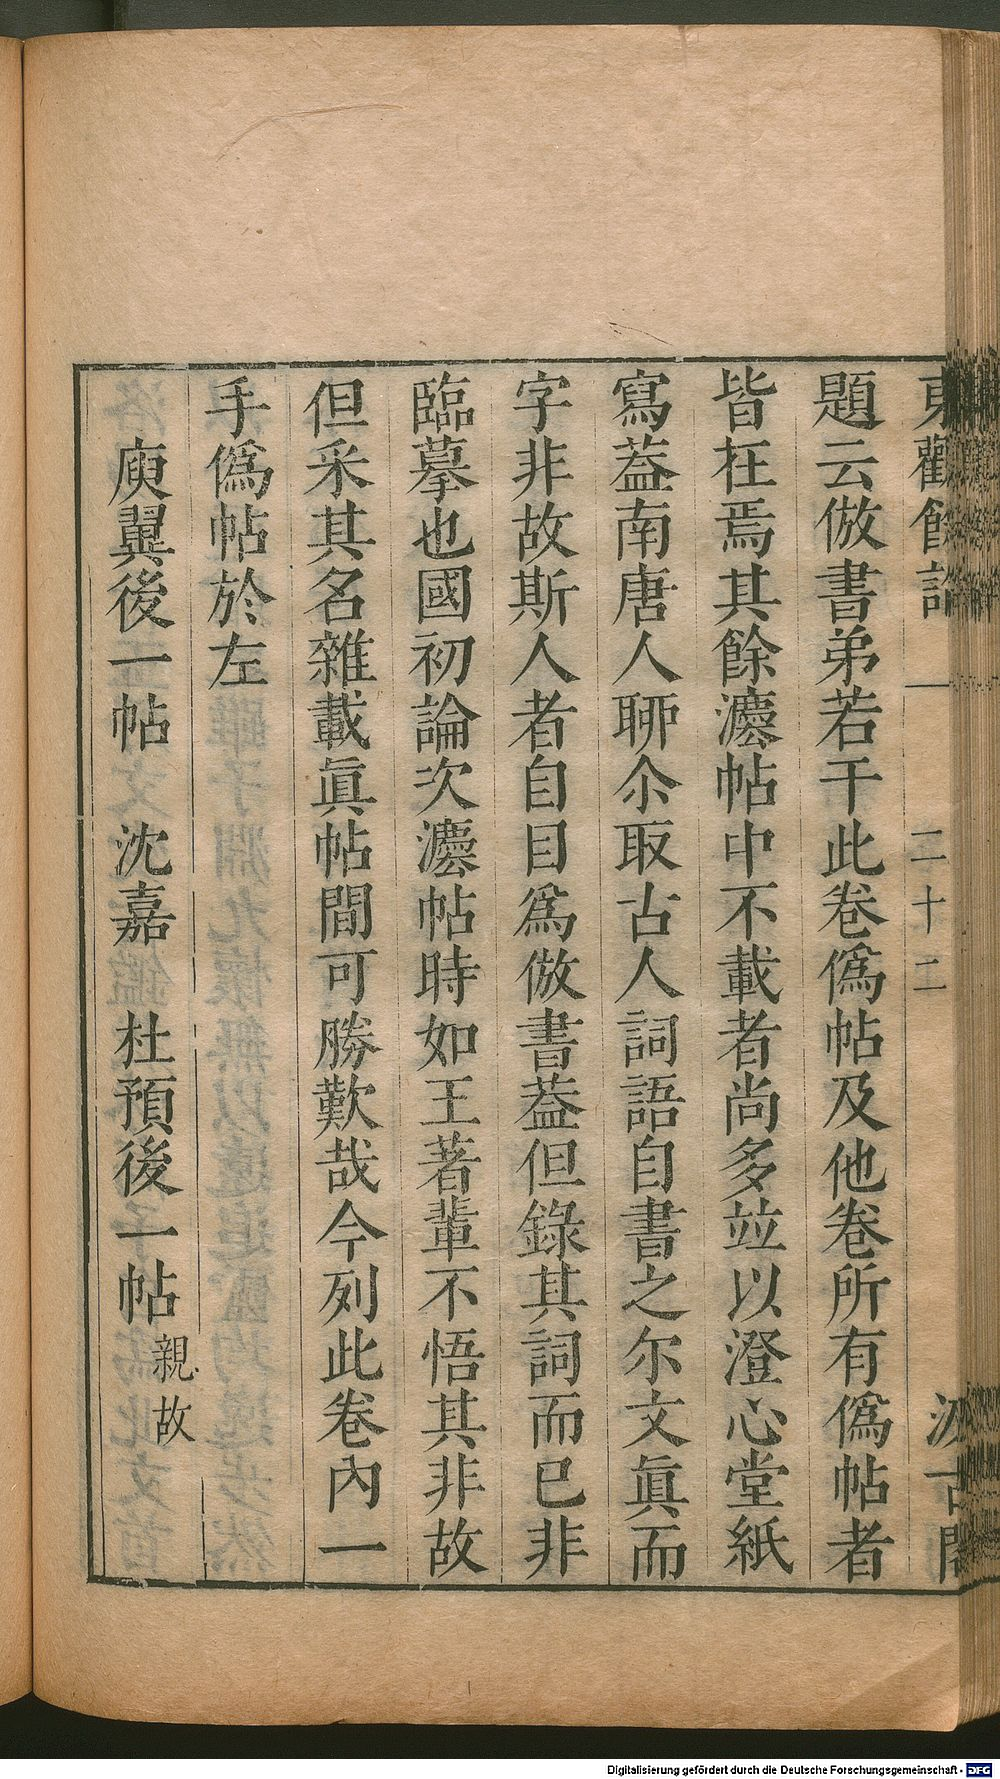 東觀餘論 一 二十二 汲古閣
題云倣書弟若干此卷僞帖及他卷所有僞帖者
皆在焉其餘灋帖中不載者尚多竝以澄心堂紙
寫葢南唐人聊尒取古人詞語自書之尔文眞而
字非故斯人者自目爲倣書葢但錄其詞而已非
臨摹也國初論次灋帖時如王著輩不悟其非故
但采其名雜載眞帖間可勝歎哉今列此卷內一
手僞帖於左
庾翼後一帖 沈嘉 杜預後一帖 親故
Digitalisierung gefördert durch die Deutsche Forschungsgemeinschaft - DFG